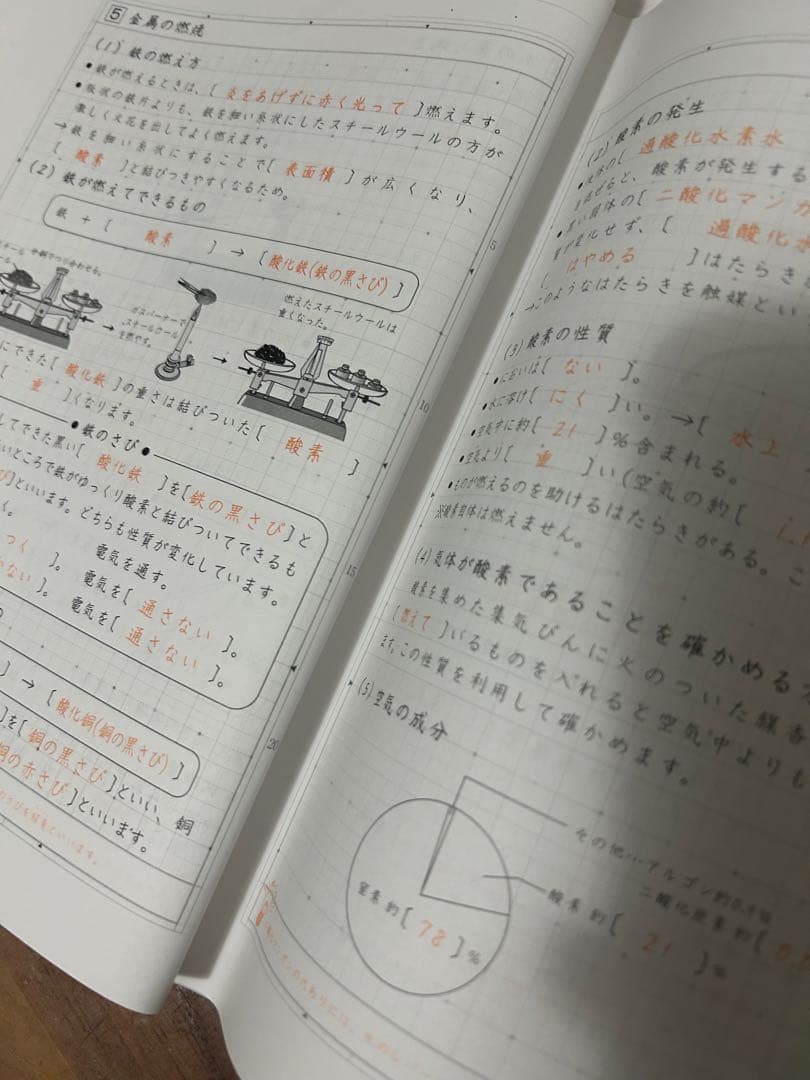 5 金属の燃焼
(1) 鉄の燃え方
●鉄が燃えるときは、[ 炎をあげずに赤く光って ]燃えます。
●板状の鉄片よりも、鉄を細い糸状にしたスチールウールの方が
激しく火花を出してよく燃えます。
→鉄を細い糸状にすることで[ 表面積 ]が広くなり、
[ 酸素 ]と結びつきやすくなるため。
(2) 鉄が燃えてできるもの
鉄 + [ 酸素 ] → [ 酸化鉄(鉄の黒さび) ]
つり合わせる。
ガスバーナーで
スチールウール
を燃やす。
燃えたスチールウールは
重くなった。
にできた[ 酸化鉄 ]の重さは結びついた[ 酸素 ]
[ 重 ]くなります。
●鉄のさび●
してできた黒い[ 酸化鉄 ]を[鉄の黒さび]と
いところで鉄がゆっくり酸素と結びついてできるも
]といいます。どちらも性質が変化しています。
く。
つく ]。 電気を通す。
]。 電気を[ 通さない ]。
電気を[ 通さない ]。
] → [ 酸化銅(銅の黒さび) ]
]を[ 銅の黒さび ]といい、銅
銅の赤さび ]といいます。
5
10
15
20
(2) 酸素の発生
[ 過酸化水素水
を混ぜると、酸素が発生する
黒い固体の[ 二酸化マンガ
質が変化せず、[ 過酸化水
[ はやめる ]はたらき
→このようなはたらきを触媒とい
(3) 酸素の性質
●においは[ ない ]。
●水に溶け[ にく ]い。→[ 水上
●空気中に約[ 21 ]%含まれる。
●空気より[ 重 ]い(空気の約[ 1.1
●ものが燃えるのを助けるはたらきがある。こ
※酸素自体は燃えません。
(4) 気体が酸素であることを確かめる
酸素を集めた集気びんに火のついた線香
[燃えて]いるものを入れると空気中よりも
ます。この性質を利用して確かめます。
(5) 空気の成分
その他…アルゴン約0.9%
二酸化炭素 約[ 0.0
酸素 約[ 21 ]%
窒素 約[ 78 ]%